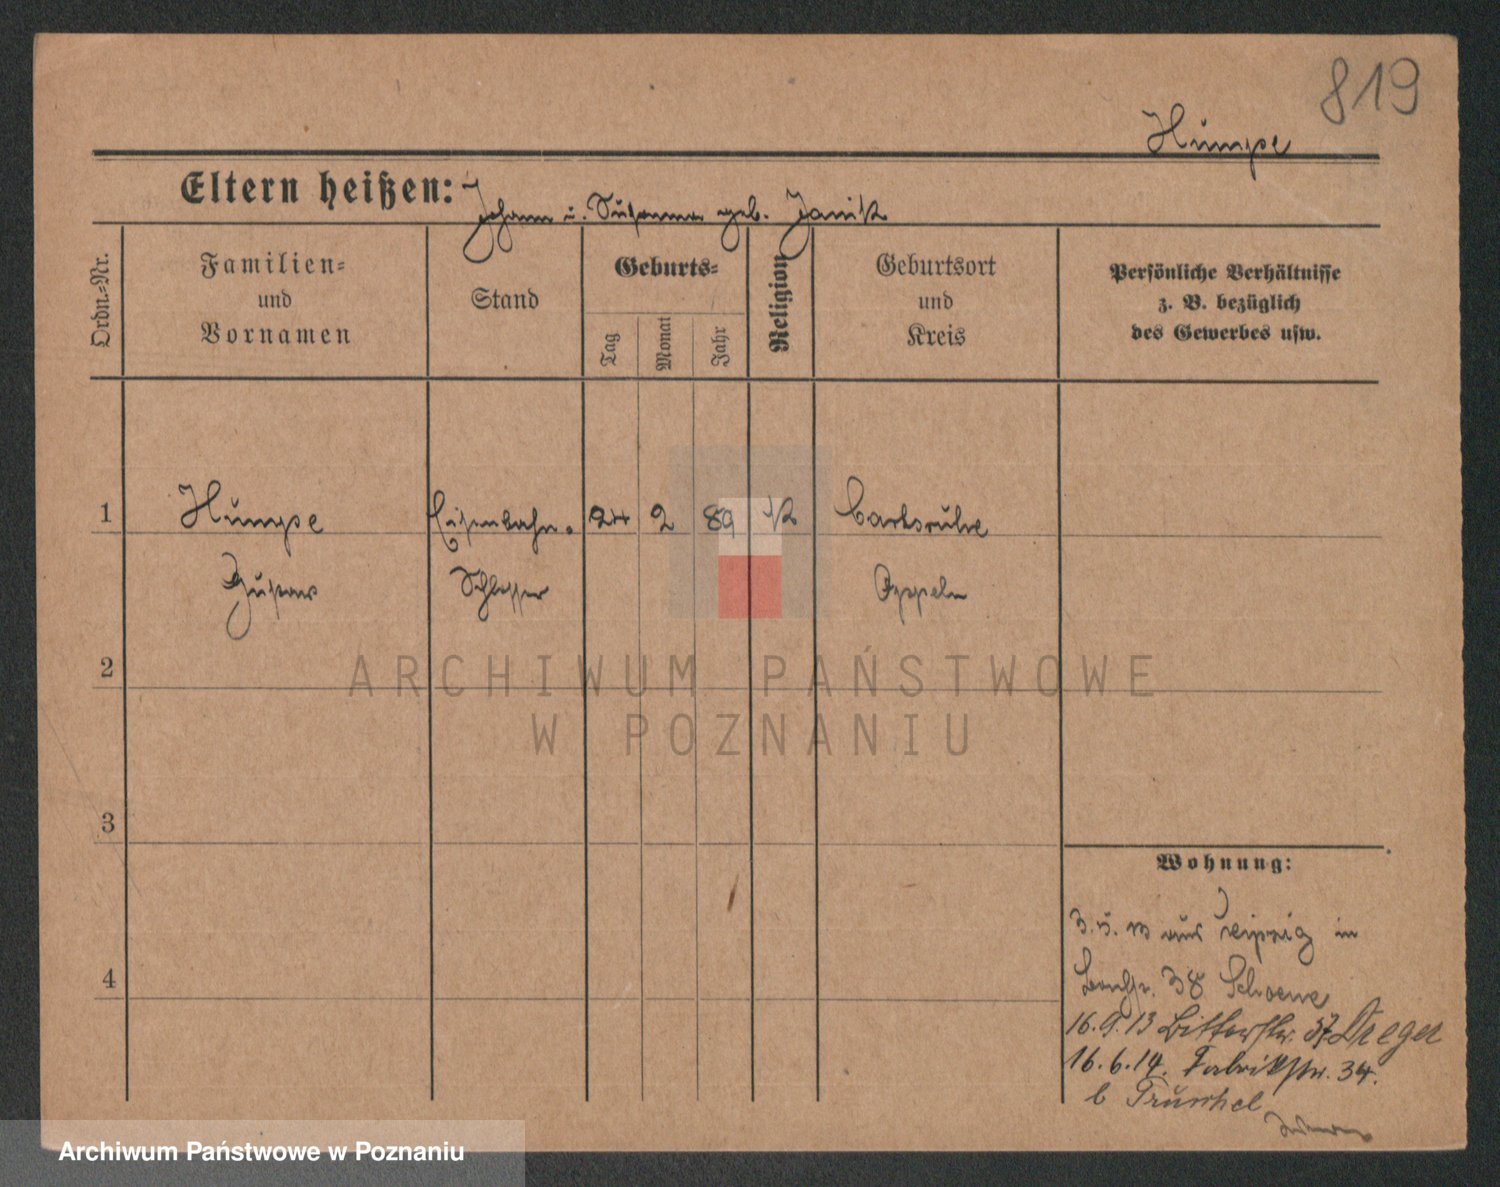 819
Humpe
Eltern heißen: Johann u. Susanna geb. Janik
Ordn.-Nr.
Familien-
und
Vornamen
Stand
Geburts-
Tag
Monat
Jahr
Religion
Geburtsort
und
Kreis
Persönliche Verhältnisse
z. B. bezüglich
des Gewerbes usw.
1 Humpe Eisenbahn- 24 2 89 k Carlsruhe
Gustav Schlosser Oppeln
2
ARCHIWUM PAŃSTWOWE
W POZNANIU
3
4
Wohnung:
3.5.13 aus Leipzig in
38 Schoene
16.9.13 Bitterstr. 37 Dreger
16.6.14. Fabrikstr. 34.
b
Archiwum Państwowe w Poznaniu